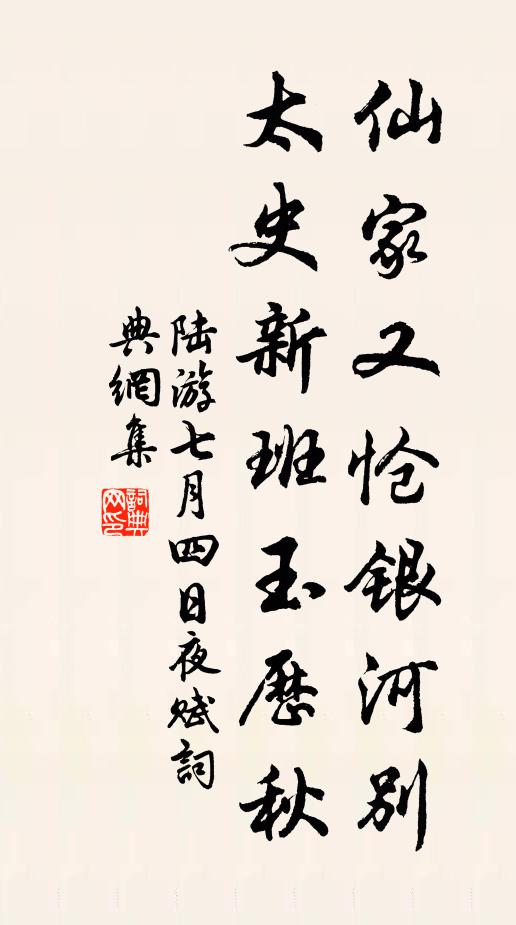 仙家又怆银河别
太史新班玉历秋
陆游七月四日夜赋詞
典網集
詞典网印